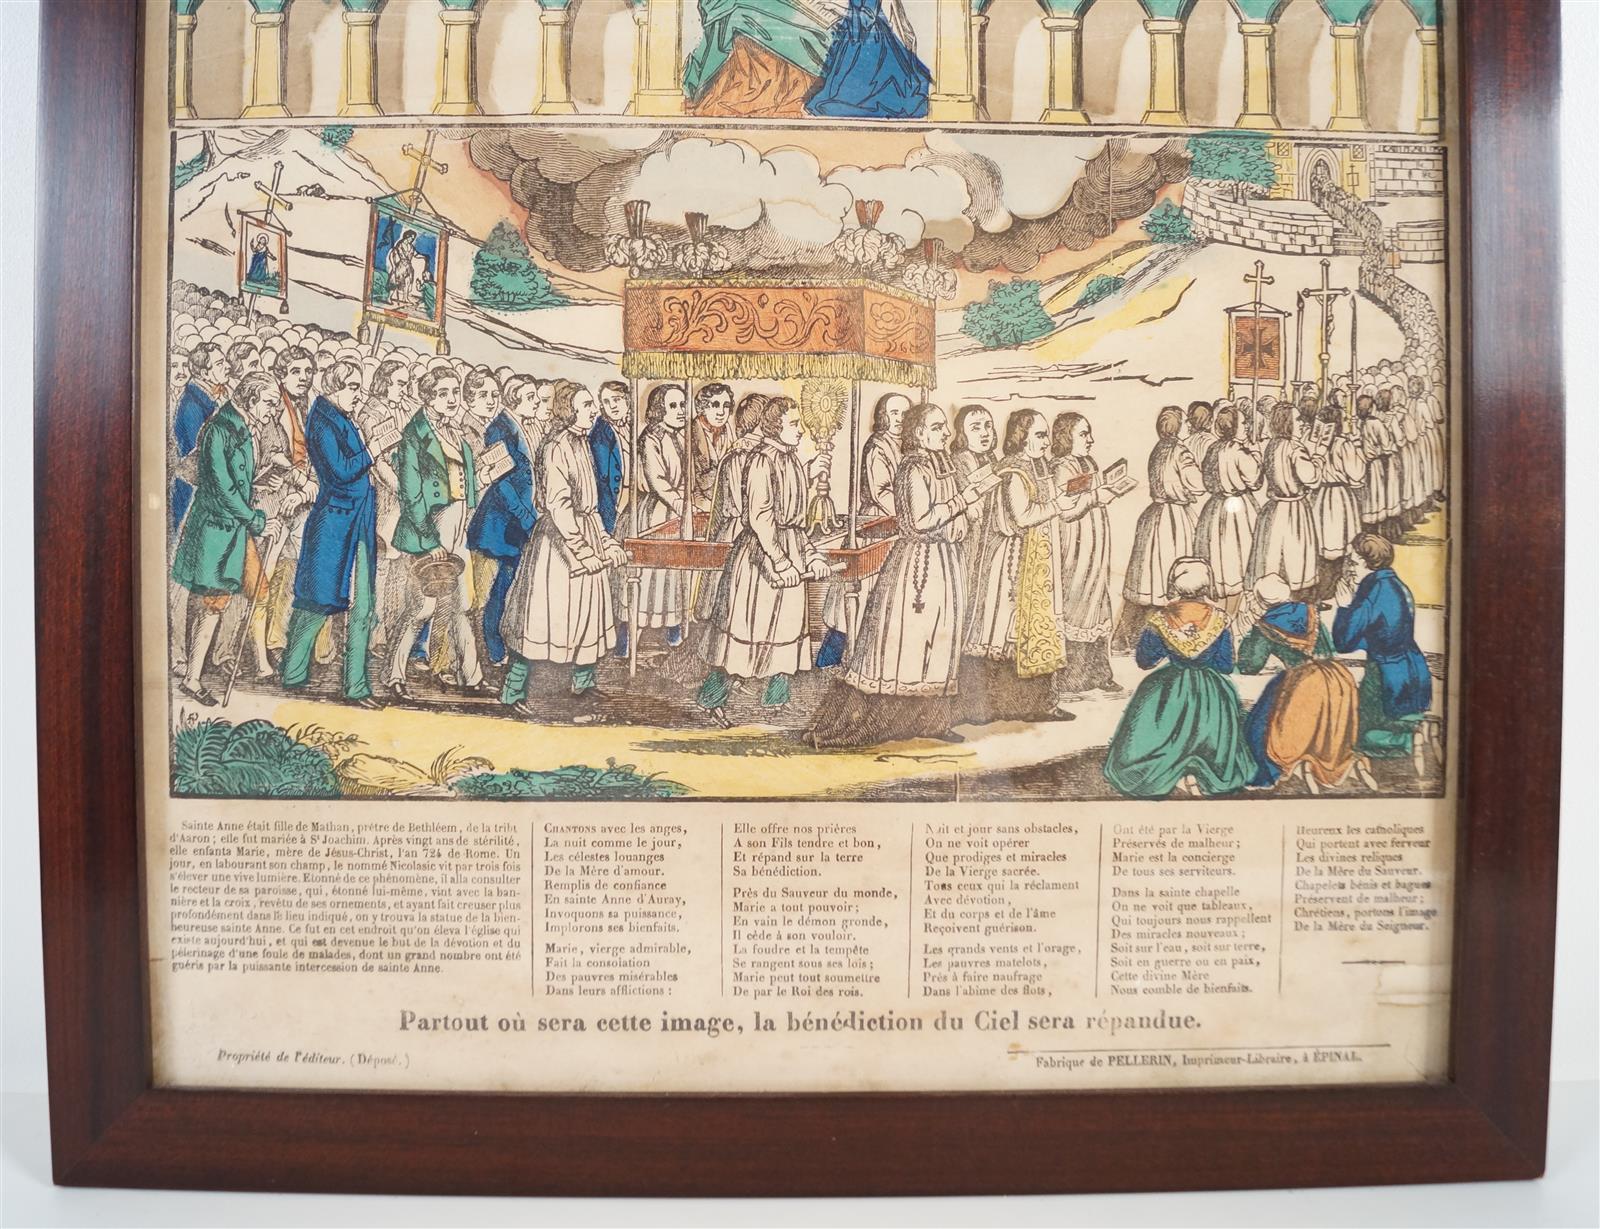 Sainte Anne était fille de Mathan, prêtre de Bethléem, de la tribu
d'Aaron; elle fut mariée à St Joachim. Après vingt ans de stérilité,
elle enfanta Marie, mère de Jésus-Christ, l'an 724 de Rome. Un
jour, en labourant son champ, le nommé Nicolasic vit par trois fois
s'élever une vive lumière. Etonné de ce phénomène, il alla consulter
le recteur de sa paroisse, qui, étonné lui-même, vint avec la ban-
nière et la croix, revêtu de ses ornements, et ayant fait creuser plus
profondément dans le lieu indiqué, on y trouva la statue de la bien-
heureuse sainte Anne. Ce fut en cet endroit qu'on éleva l'église qui
existe aujourd'hui, et qui est devenue le but de la dévotion et du
pélerinage d'une foule de malades, dont un grand nombre ont été
guéris par la puissante intercession de sainte Anne.
CHANTONS avec les anges,
La nuit comme le jour,
Les célestes louanges
De la Mère d'amour.
Remplis de confiance
En sainte Anne d'Auray,
Invoquons sa puissance,
Implorons ses bienfaits.
Marie, vierge admirable,
Fait la consolation
Des pauvres misérables
Dans leurs afflictions :
Elle offre nos prières
A son Fils tendre et bon,
Et répand sur la terre
Sa bénédiction.
Près du Sauveur du monde,
Marie a tout pouvoir;
En vain le démon gronde,
Il cède à son vouloir.
La foudre et la tempête
Se rangent sous ses lois;
Marie peut tout soumettre
De par le Roi des rois.
Nuit et jour sans obstacles,
On ne voit opérer
Que prodiges et miracles
De la Vierge sacrée.
Tous ceux qui la réclament
Avec dévotion,
Et du corps et de l'âme
Reçoivent guérison.
Les grands vents et l'orage,
Les pauvres matelots,
Près à faire naufrage
Dans l'abime des flots,
Ont été par la Vierge
Préservés de malheur;
Marie est la concierge
De tous ses serviteurs.
Dans la sainte chapelle
On ne voit que tableaux,
Qui toujours nous rappellent
Des miracles nouveaux;
Soit sur l'eau, soit sur terre,
Soit en guerre ou en paix,
Cette divine Mère
Nous comble de bienfaits.
Heureux les catholiques
Qui portent avec ferveur
Les divines reliques
De la Mère du Sauveur.
Chapelets bénis et bagues
Préservent de malheur;
Chrétiens, portons l'image
De la Mère du Seigneur.
Partout où sera cette image, la bénédiction du Ciel sera répandue.
Propriété de l'éditeur. (Déposé.)
Fabrique de PELLERIN, Imprimeur-Libraire, à ÉPINAL.